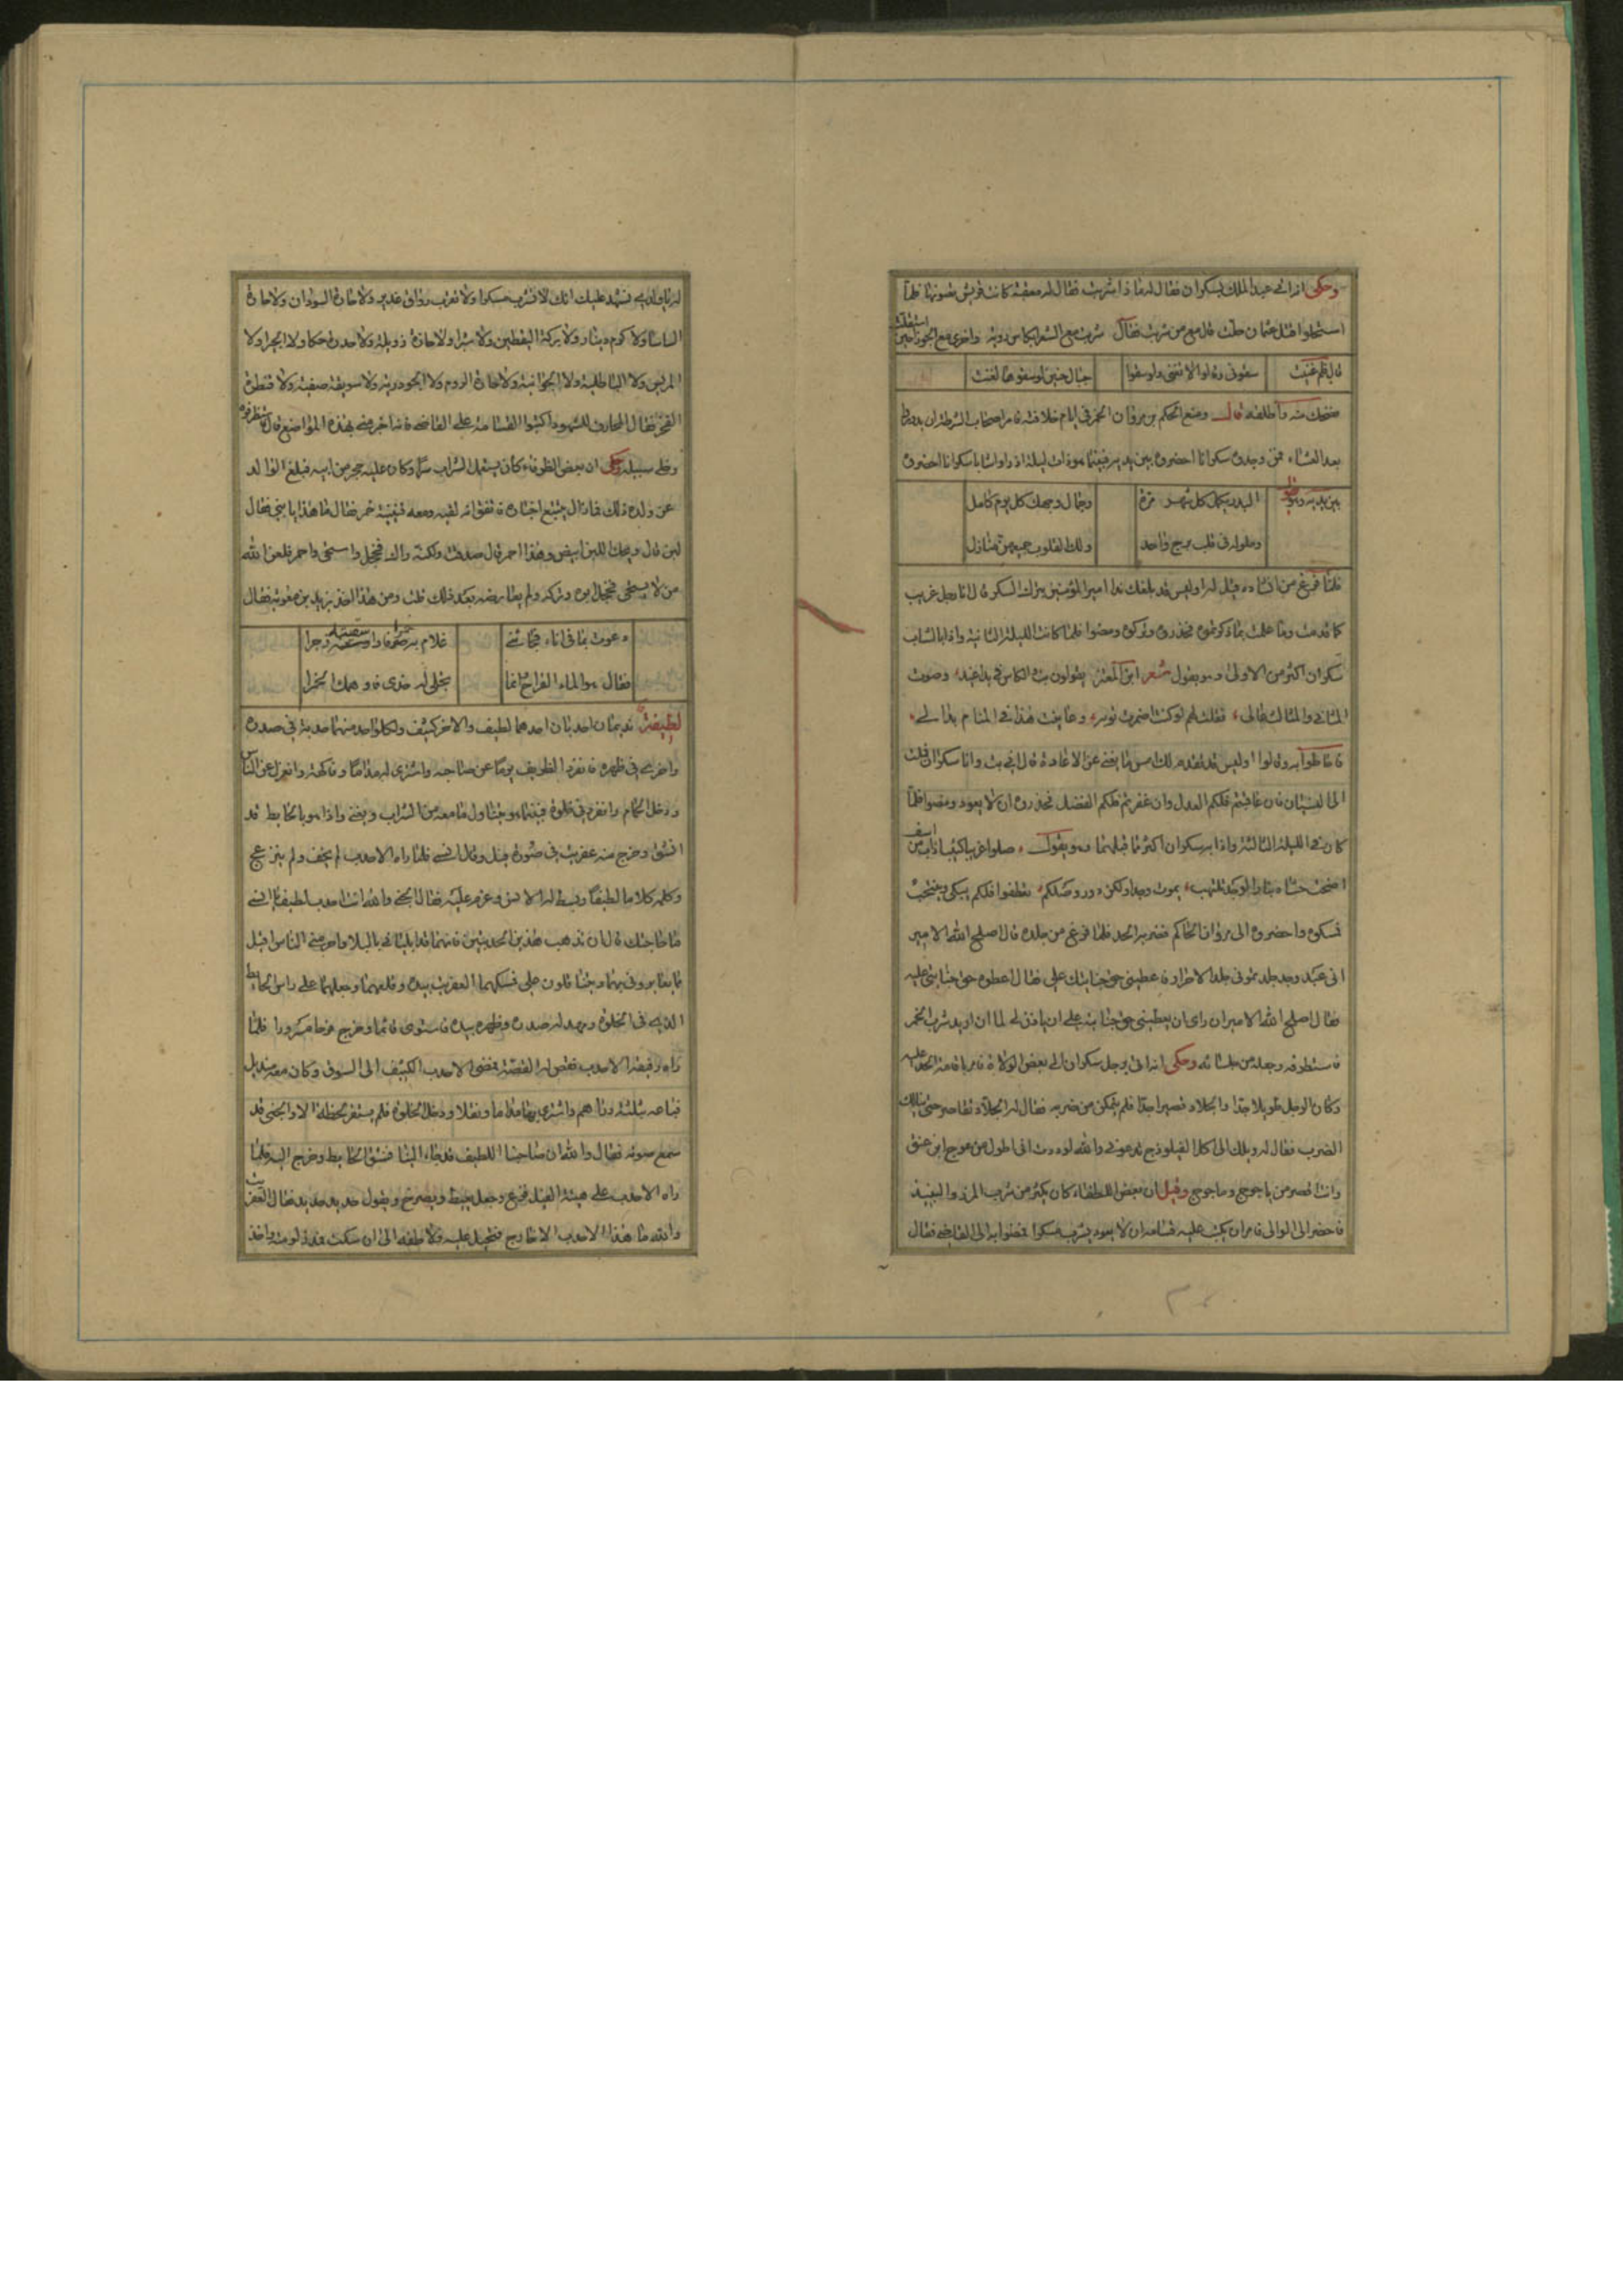 وحكى انه اتى عبد الملك بسكران فقال له ماذا شربت فقال له معتقة كانت قريش تصونها فلما
استحلوا قتل عثمان حلت قال مع من شربت فقال شربت مع الشعرا بكاس روية واخرى مع الجوزا حين استقلت
قال فلم غنيت سقونى وقالوا لا تغنى ولو سقوا جبال حنين لو سقوها لغنت
فضحك منه واطلقه قال ومنع الحكم بن مروان الخمر فى ايام خلافته فامر اصحاب الشرطة ان يدوروا
بعد العشاء فمن وجدوه سكرانا احضروه بين يديه فبينما هو ذات ليلة اذ راوا شابا سكرانا احضروه
بين يديه وهو يقول البدر يكمل كل شهر مرة وجمال وجهك كل يوم كامل
وحلوله فى قلب برج واحد ولك القلوب جميعهن منازل
فلما فرغ من انشاده قيل له اوليس قد بلغك ندا امير المؤمنين بترك السكر قال انا رجل غريب
كما قدمت وما علمت بما ذكرتموه فحذروه وتركوه ومضوا فلما كانت الليلة الثانية واذا بالشاب
سكران اكثر من الاولى وهو يقول شعر ابن المعتز يقولون تب والكاس فى يد اغيد وصوت
المثانى والمثالث عالى فقلت لهم لو كنت اضمرت توبة وعاينت هذا فى المنام بدا لى
فاحاطوا به وقالوا اوليس قد تقدم لك امس ما يغنى عن الاعادة قال انى تبت وانا سكران قلت
الخالفيتان فان عاقبتم فلكم العدل وان غفرتم فلكم الفضل فحذروه ان لا يعود ومضوا فلما
كان فى الليلة الثالثة واذا به سكران اكثر مما قبلهما وهو يقول صلوا غريبا كئيبا ذاب من اسف
اضحت حشاه بنار الوجد تلتهب يموت وجدا ولكن دون وصلكم تعطفوا فلكم يبكى وينتحب
فمسكوه واحضروه الى مروان الحاكم فضربه الحد فلما فرغ من جلده قال اصلح الله الامير
انى عبد وجد جلدتمونى جلد الاحرار فاعطينى حق جنايتك على فقال اعطوه حق جنايتى عليه
فقال اصلح الله الامير ان راى ان يعطينى حق جنايته على ان ياذن لى لما ان اريد شرب الخمر
فاستظرفه وجعله من جلسائه وحكى انه اتى برجل سكران الى بعض الولاة فامر باقامة الحد عليه
وكان الرجل طويلا جدا والجلاد قصيرا جدا فلم يتمكن من ضربه فقال له الجلاد تقاصر حتى ينالك
الضرب فقال له ويلك الى اكل الفيلوذج تدعونى والله لوددت انى اطول من عوج ابن عنق
وانت اقصر من ياجوج وماجوج وقيل ان بعض اللطفاء كان يكثر من شرب المزر والنبيذ
فاحضر الى الوالى فامر ان يكتب عليه قسامة ان لا يعود يشرب مسكرا فمضوا به الى القاضى فقال
له نشهد عليك انك لا تشرب مسكرا ولا تعرف رواق غدير ولا حارة السودان ولا حارة
الساسا ولا كوم دينار ولا بركة اليقطين ولا شبرا ولا حارة زويلة ولا حدرة عكا ولا الجرا ولا
المريس ولا الباطلية ولا الجوانية ولا حارة الروم ولا الجودرية ولا سويقة صفية ولا قنطرة
الفخر فقال المحارف للشهود اكتبوا القسامة على القاضى فما اخبرنى بهذه المواضع قال فاستظرفوه
وخلى سبيله وحكى ان بعض الظرفاء كان يستعمل الشراب سرا وكان عليه حجر من ابيه فبلغ الوالد
عن ولده ذلك فما زال يتتبع اخباره فاتفق انه لقيه ومعه قنينة خمر فقال ما هذا يا بنى فقال
لبن قال ويحك اللبن ابيض وهذا احمر قال صدقت ولكنه راك فخجل واستحى واحمر فلعن الله
من لا يستحى فخجل ابوه وتركه ولم يعارضه بعد ذلك قلت ومن هذا اخذ يزيد بن معوية فقال
دعوت بما فى اناء فجائنى غلام به خمرا فاوسعته زجرا
فقال هو الماء القراح وانما تجلى له خدى فاوهمك الخمرا
لطيفة نديمان احدبان احدهما لطيف والاخر كثيف ولكل واحد منهما حدبة فى صدره
واخرى فى ظهره فانفرد الظريف يوما عن صاحبه واشترى له مداما وفاكهة وانعزل عن الناس
ودخل الحمام وانفرد فى خلوة فبينما هو يتناول ما معه من الشراب ويغنى واذا هو بالحايط قد
انشق وخرج منه عفريت فى صورة فيل وقال انسى فلما راه الاحدب لم يخف ولم ينزعج
وكلمه كلاما لطيفا وبسط له الانس وعزم عليه فقال الجنى والله انت احدب لطيف يا انسى
ما حاجتك قال ان تذهب هذين الحدبتين فانهما قد ابليانى بالبلا واحرمنى الناس قبل
ما بعنا بروقيهما وجئنا قارن على فمسكهما العفريت بيده وقلعهما وجعلهما على راس الحايط
الذى فى الخلوة ومهد له صدره وظهره بيده فاستوى قائما وخرج فرحا مسرورا فلما
راه رفيقه الاحدب فقص له القصة فمضى الاحدب الكثيف الى السوق وكان معه منديل
فباعه بثلثة دراهم واشترى بها مداما ونقلا ودخل الخلوة فلم يستقر لحظة الا والجنى قد
سمع صوته فقال والله ان صاحبنا اللطيف قد جاء الينا فشق الحايط وخرج اليه فلما
راه الاحدب على هيئة الفيل فزع وجعل يعيط ويصرخ ويقول حديد حديد فقال العفريت
والله ما هذا الاحدب الا خارج فتحيل عليه ولاطفه الى ان سكت فمد ومته واخذ